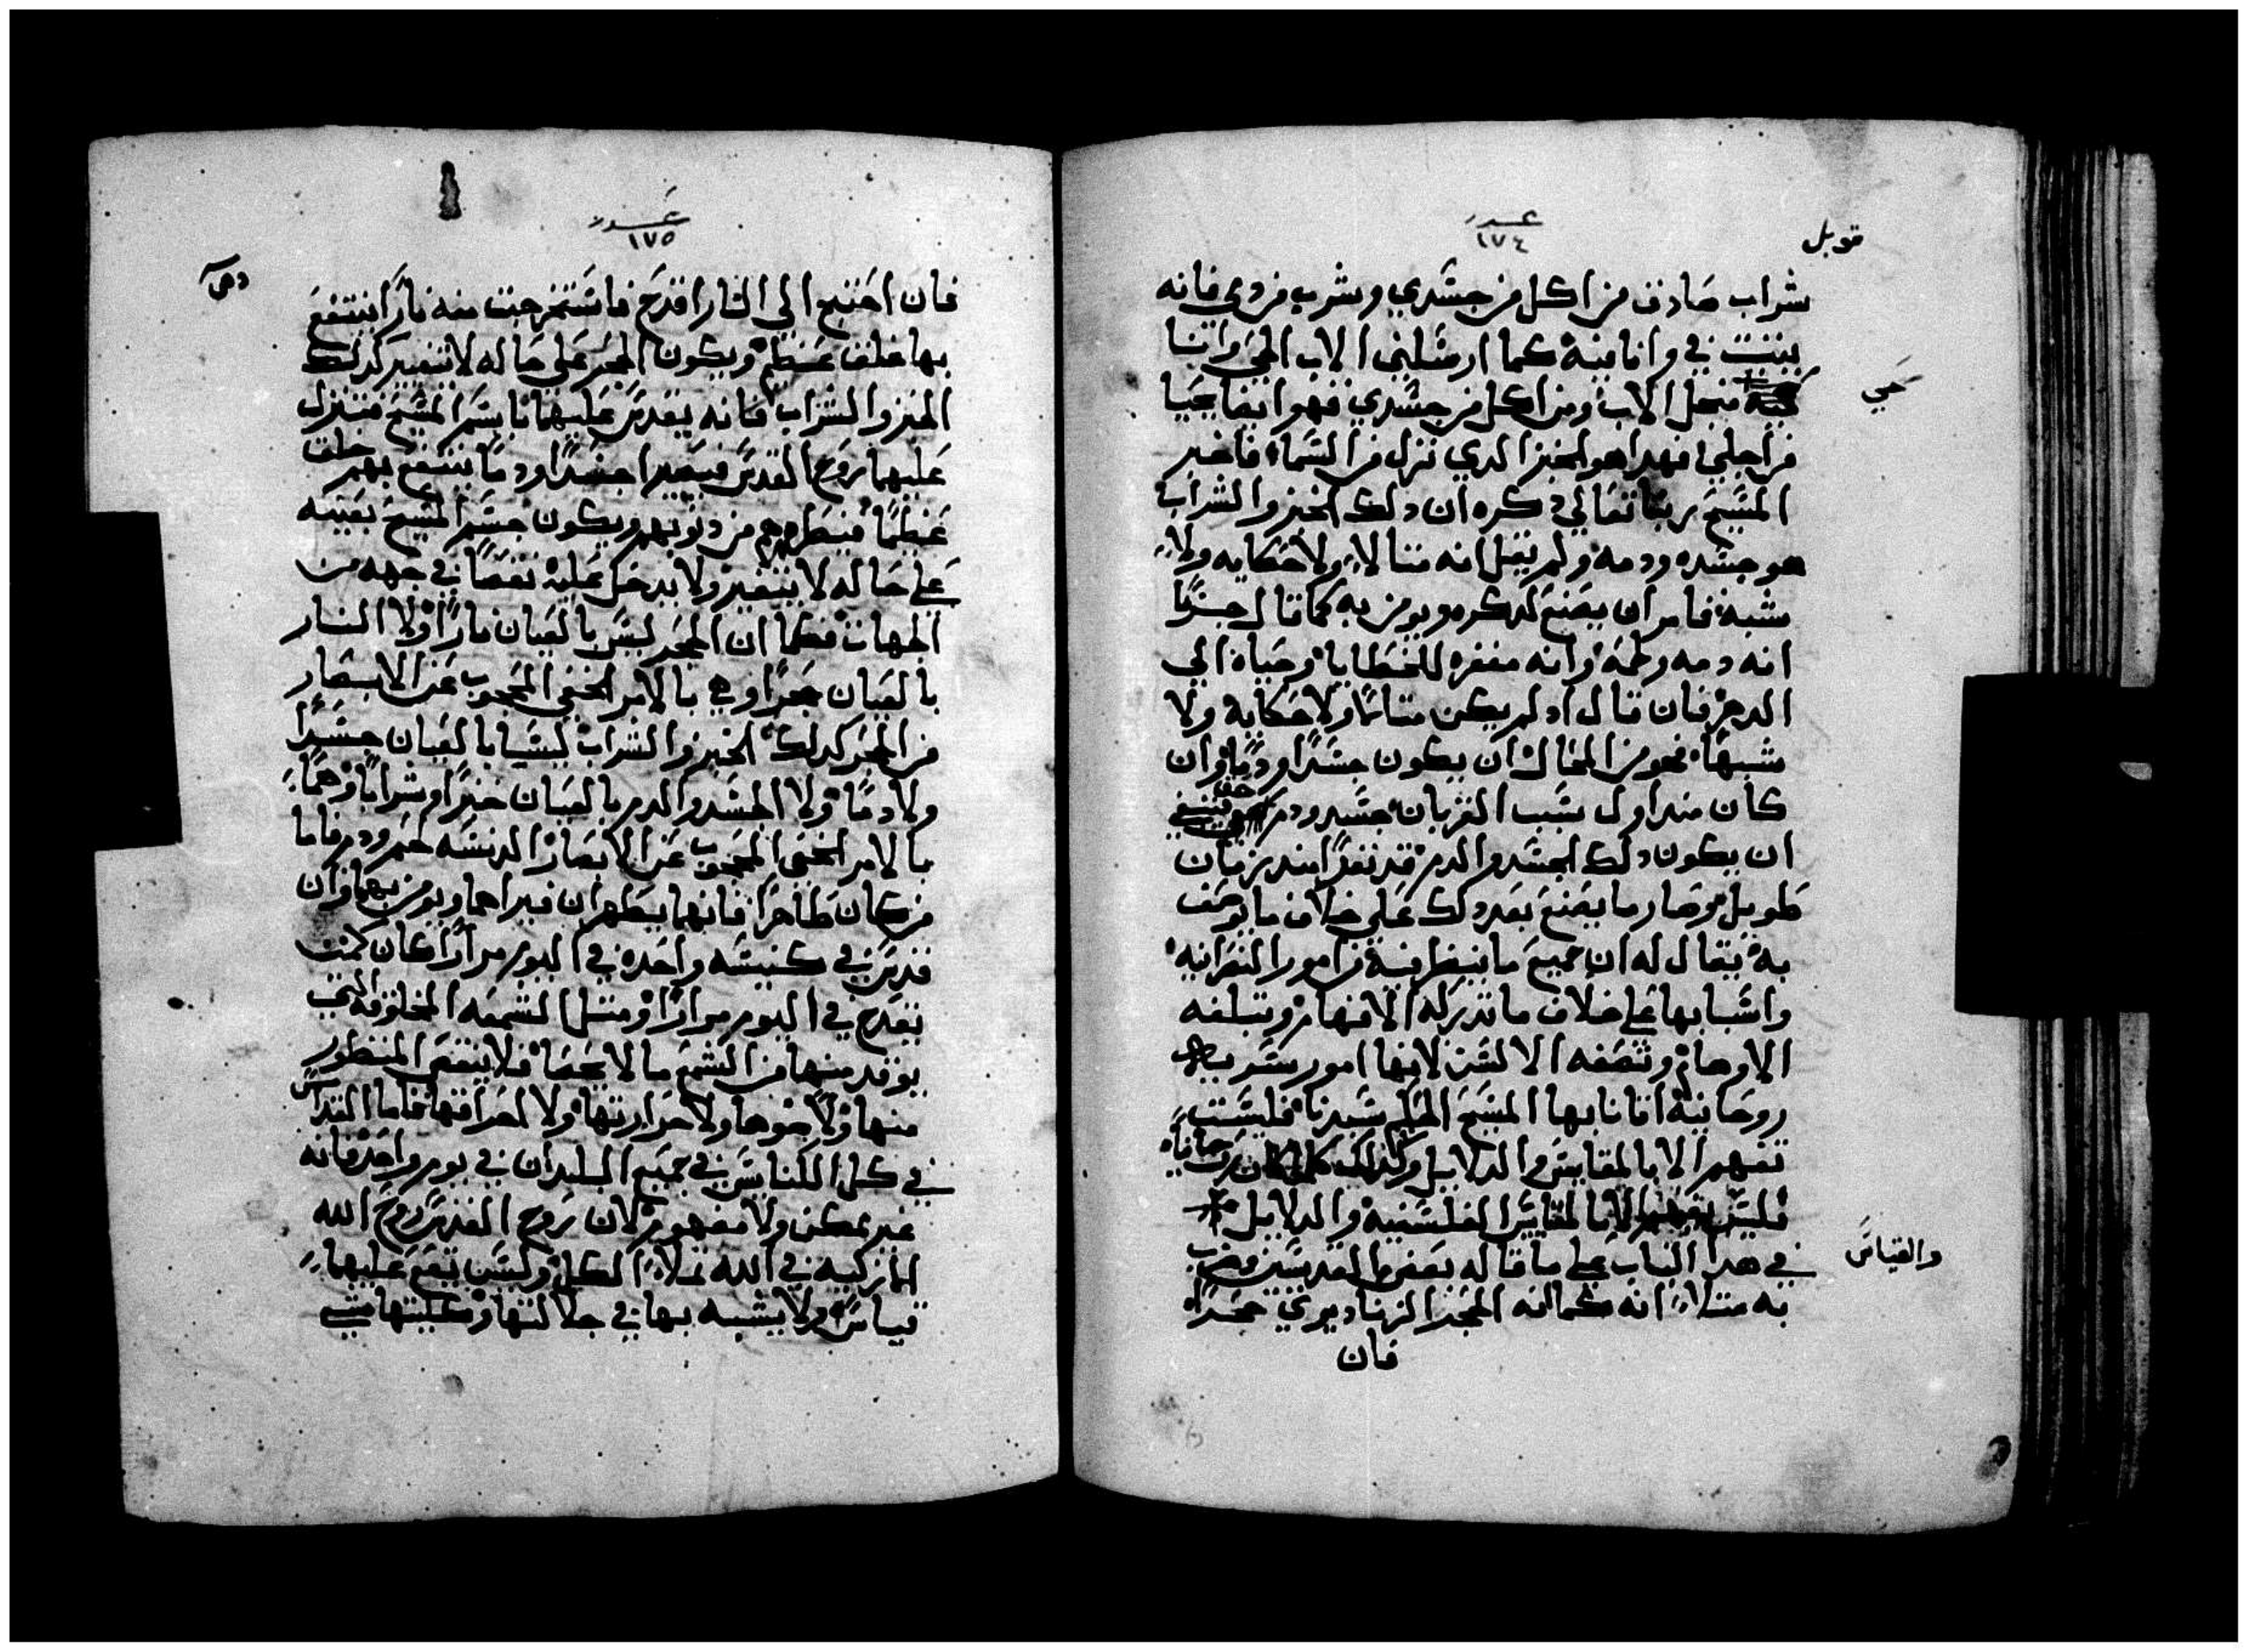 قوبل
عدد
١٧٤
شراب صادق من اكل من جسدي وشرب من دمي فانه
يثبت في وانا فيه كما ارسلني الاب الحي وانا
حي
من اجل الاب ومن اكل من جسدي فهو ايضا يحيا
من اجلي فهدا هو الخبز الدي نزل من السما فاخبر
المسيح ربنا تعالي دكره ان دلك الخبز والشراب
هو جسده ودمه ولم يقل انه مثالا ولا حكايه ولا
شبه فامر ان يصنع لدكره ويومن به كما قال
انه دمه ولحمه وانه مغفره للخطايا وحياه الي
الدهر فان قال اد لم يكن مثالا ولا حكاية ولا
شبها فهو من المحال ان يكون جسدا ودما وان
كان مند اول بسبب القربان جسد ودم فينبغي
ان يكون دلك الجسد والدم قد نفدا مند زمان
طويل وصار ما يصنع بعد دلك علي خلاف ما يوصف
به يقال له ان جميع ما ينظر فيه من امور النصرانيه
واسبابها علي خلاف ما تدركه الافهام وتبلغه
الاوهام وتصفه الالسن لانها امور
روحانية اتانا بها المسيح سيدنا فليست
تفهم الا بالمقايس والدلايل وكدلك كلما كان روحانيا
فليس يفهم الا بالمقايس الفلسفية والدلايل
والقياس
في هدا الباب علي ما قاله بعض القديسين وضرب
به مثلا انه كما انه الحجر الزناد يري حجرا
فان
عدد
١٧٥
فان احتيج الي النار اقدح فاستخرجت منه نارا ينتفع
بها خلق عظيم ويكون الحجر علي حاله لا يتغير كدلك
الخبز والشراب فانه يقدس عليهما باسم المسيح فتنزل
عليهما روح القدس فيصيرا جسدا ودما ينتفع بهم خلق
عظيما فيطهرهم من دنوبهم ويكون جسم المسيح بعينه
علي حاله لا يتغير ولا يدخل عليه نقصا في جهه من
الجهات فكما ان الحجر ليس بالعيان نارا ولا النار
بالعيان حجرا وهي بالامر الخفي المحجوب عن الابصار
من الحجر كدلك الخبز والشراب ليسا بالعيان جسدا
ولا دما ولا الجسد والدم بالعيان خبزا وشرابا وهما
بالامر الخفي المحجوب عن الابصار الدنسه لحم ودم فاما
من كان طاهرا فانهما يظهران فيراهما ويومن بهما وان
قدس في كنيسه واحده في اليوم مرارا كان كمثل
تقدح في اليوم مرارا ومثل الشمعه المخلوقه التي
يوقد منها من الشمع ما لا يحصا فلا ينقص المنظور
منها ولا ضوها ولا حرارتها ولا احراقها فاما القداس
في كل الكنايس في جميع البلدان في يوم واحد فانه
غير ممكن ولا مفهوم لان روح القدس روح الله
الازليه في الله تملا الكل وليس يقع عليها
قياس ولا يشبه بها في جلالتها وكليتها شي